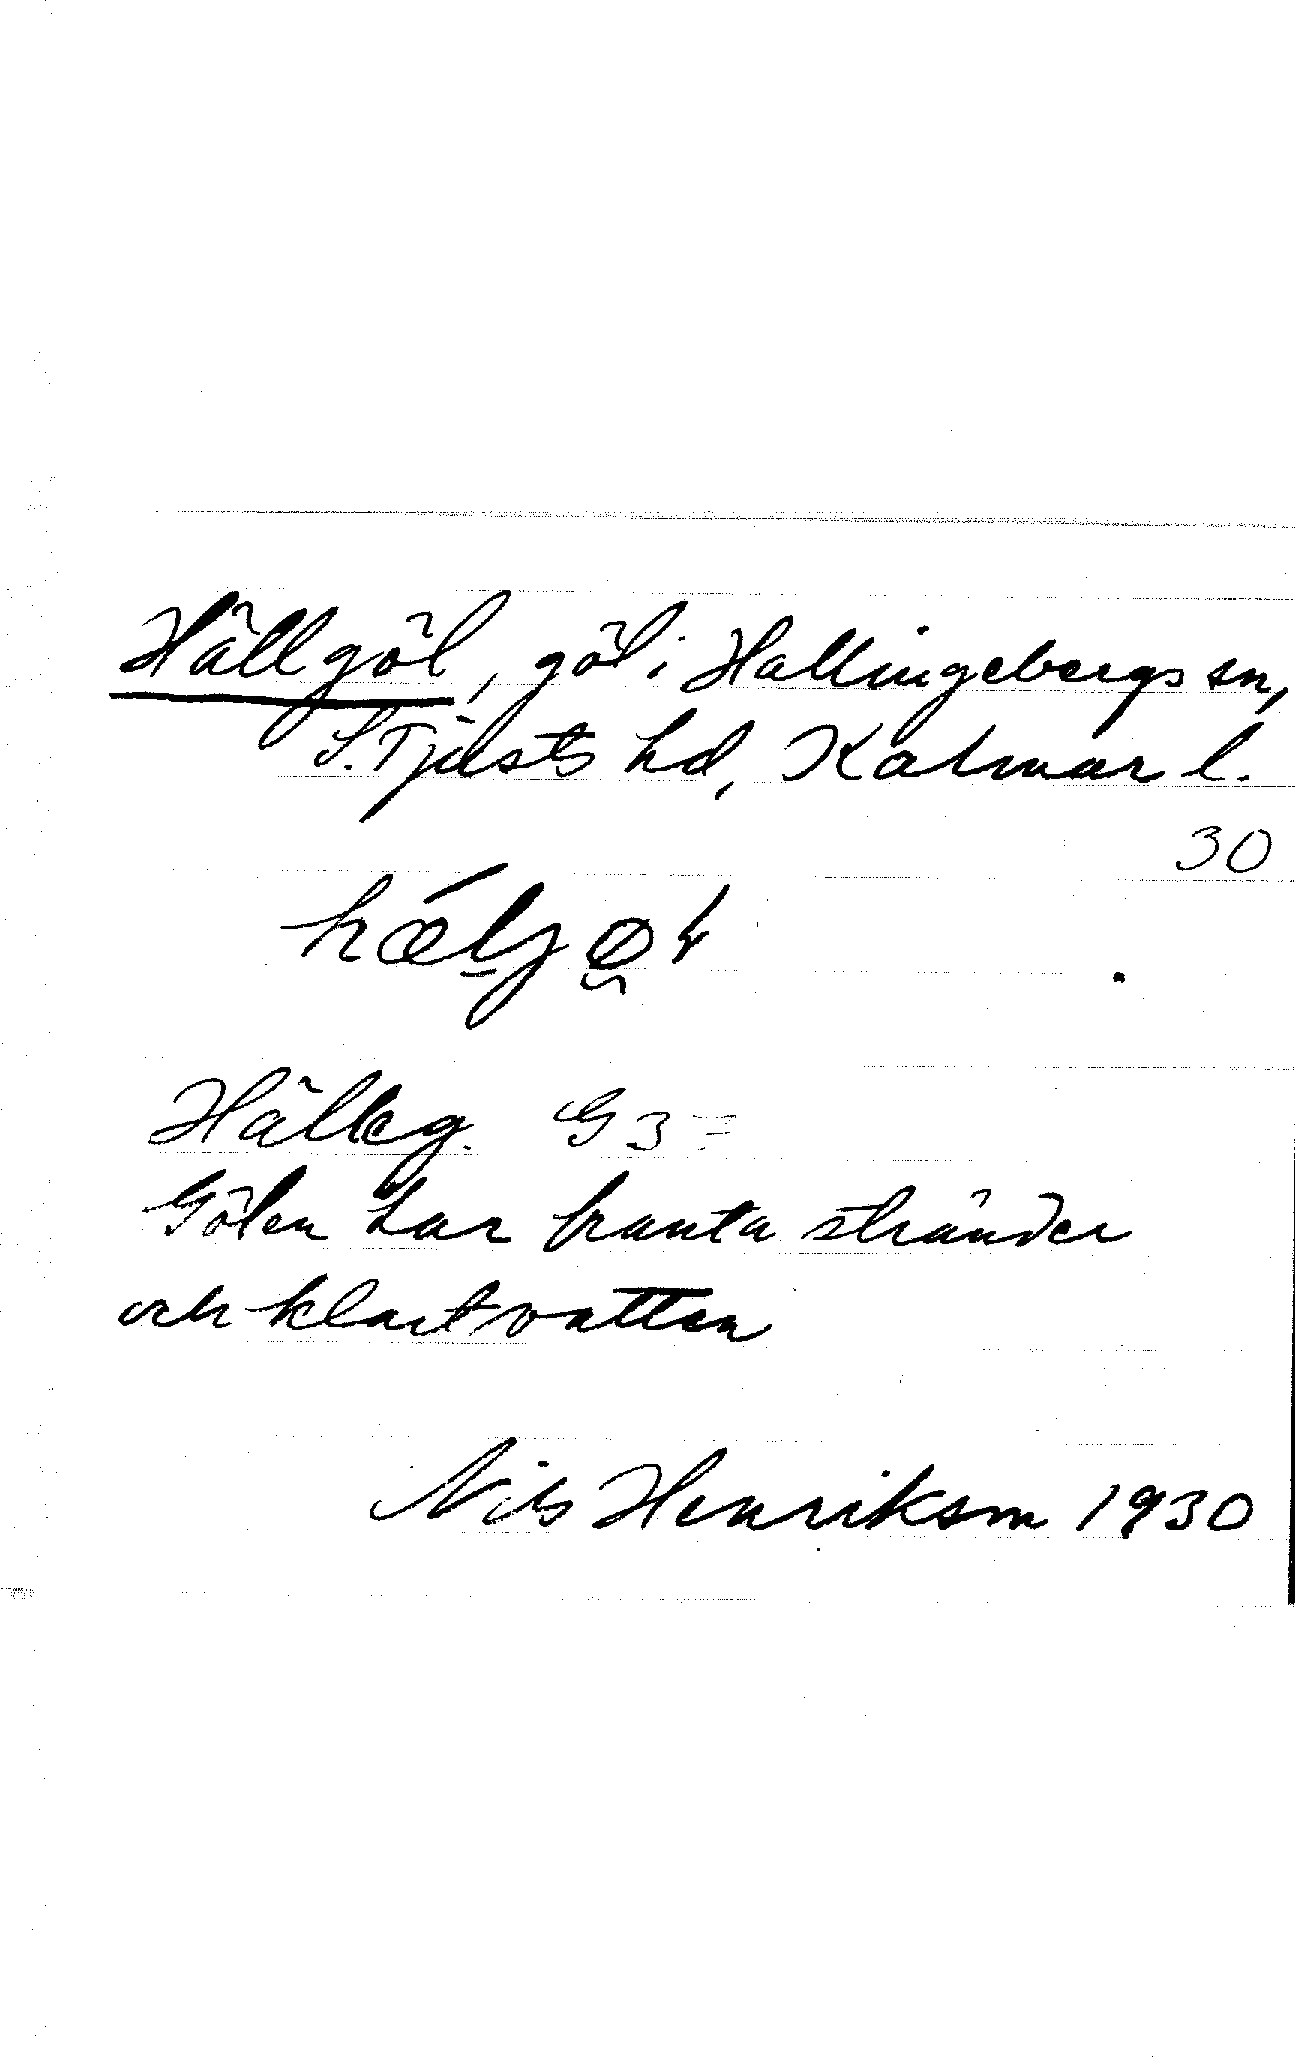 Hällgöl, göl i Hallingebergs sn,
S. Tjusts hd, Kalmar l.
30
Hälleg. G 3
Gölen har branta stränder
och klart vatten
Nils Henrikson 1930